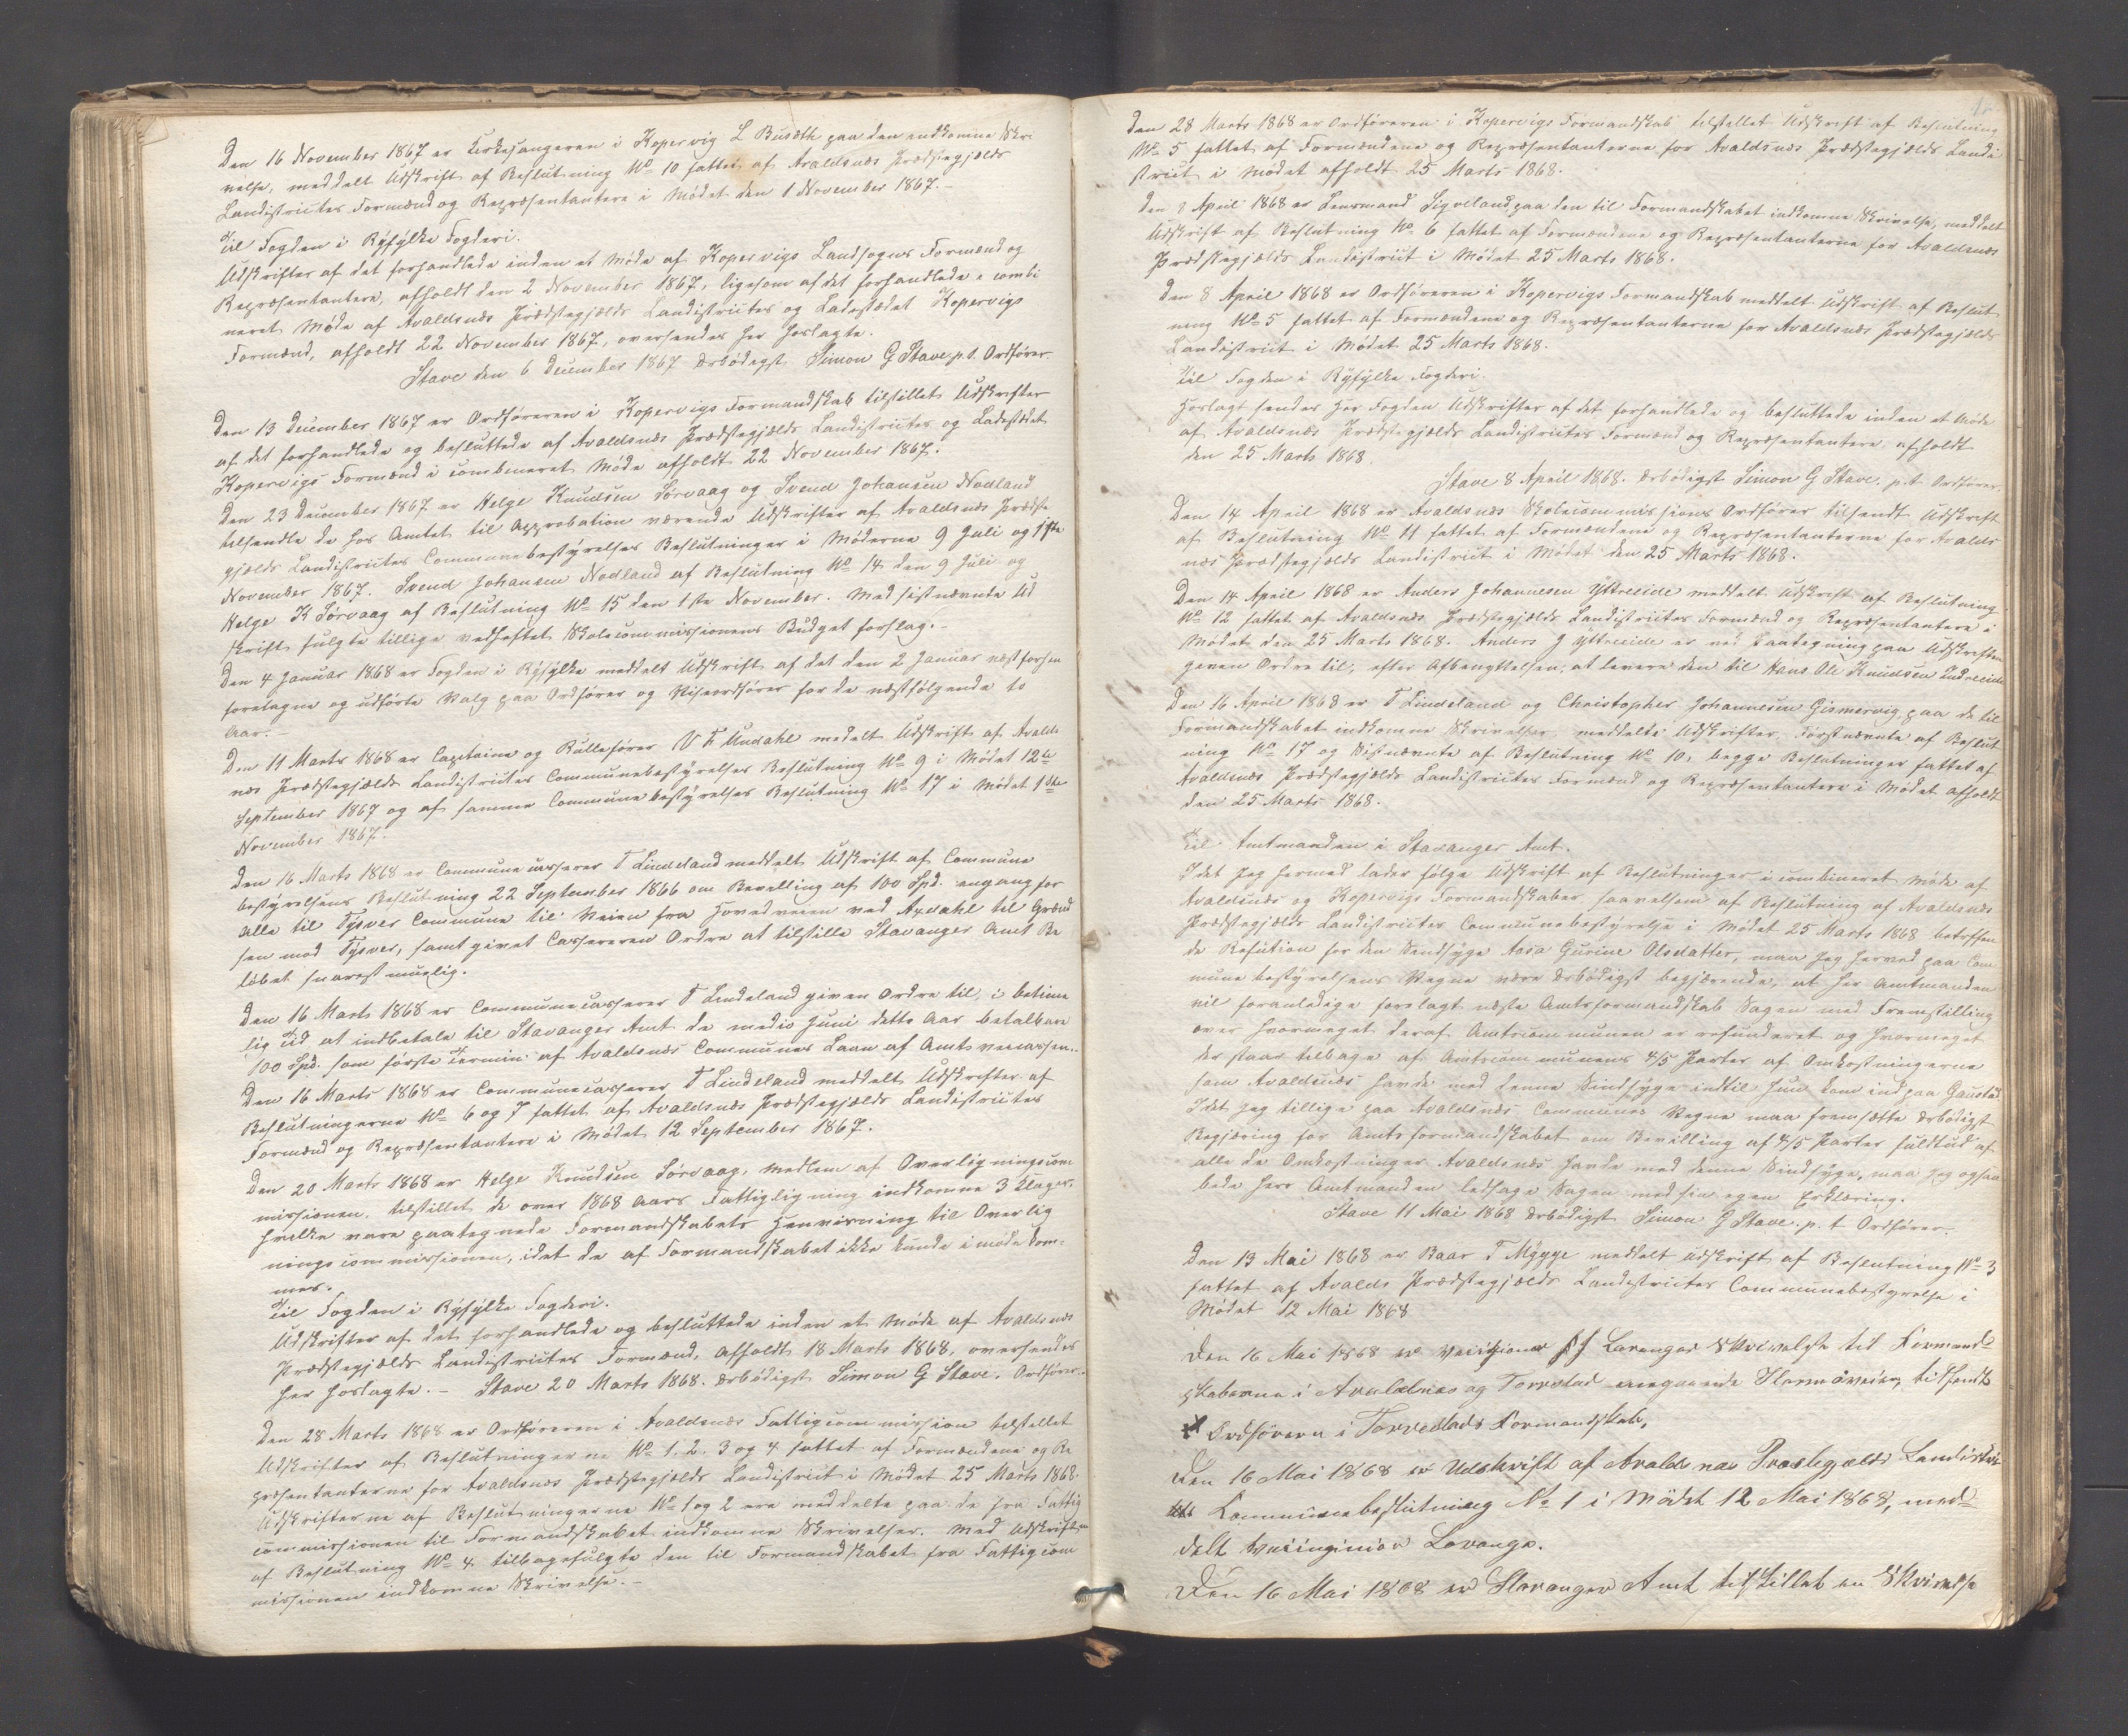 Den 16 November 1867 er Kirkesangeren i Kopervig L Busæth paa den indkomne Skri
velse, meddelt Udskrift af Beslutning No 10 fattet af Avaldsnæs Præstegjælds
Landistricts Formænd og Repræsentantere i Mødet den 1 November 1867.-
Til Fogden i Ryfylke Fogderi.
Udskrifter af det forhandlede inden et Møde af Kopervigs Landsogns Formænd og
Repræsentantere, afholdt den 2 November 1867, ligesom af det forhandlede i combi
neret Møde af Avaldsnæs Præstegjælds Landistricts og Ladestædet Kopervigs
Formænd, afholdt 22 November 1867, oversendes her hoslagte.
Stave den 6 December 1867 Ærbødigst Simon G Stave p.t. Ordfører
Den 13 December 1867 er Ordføreren i Kopervigs Formandskab tilstillet Udskrifter
af det forhandlede og besluttede af Avaldsnæs Præstegjælds Landistricts og Ladestedet
Kopervigs Formænd i combineret Møde afholdt 22 November 1867.
Den 23 December 1867 er Helge Knudsen Sørvaag og Svend Johansen Nodland
tilsendte de hos Amtet til Approbation værende Udskrifter af Avaldsnæs Præste
gjælds Landistricts Communebestyrelses Beslutninger i Møderne 9 Juli og 1ste
November 1867. Svend Johansen Nodland af Beslutning No 14 den 9 Juli og
Helge K Sørvaag af Beslutning No 15 den 1ste November. Med sistnævnte Ud
skrift fulgte tillige vedheftet Skolecommissionens Budget forslag.-
Den 4 Januar 1868 er Fogden i Ryfylke meddelt Udskrift af det den 2 Januar næstforhen
foretagne og udførte Valg paa Ordfører og Viseordfører for de næstfølgende to
Aar.-
Den 11 Marts 1868 er Capitaine og Rullefører V F Undahl medelt Udskrift af Avalds
næs Præstegjælds Landistricts Communebestyrelses Beslutning No 9 i Mødet 12te
September 1867 og af samme Communebestyrelses Beslutning No 17 i Mødet 1ste
November 1867.
Den 16 Marts 1868 er Communecasserer T Lindeland meddelt Udskrift af Commune
bestyrelsens Beslutning 22 September 1866 om Bevelling af 100 Spd. engang for
alle til Tysvær Commune til Veien fra Hovedveien ved Axdahl til Grænd
sen mod Tysvær, samt givet Cassereren Ordre at tilstille Stavanger Amt Be
løbet snarest muelig.
Den 16 Marts 1868 er Communecasserer T Lindeland given Ordre til, i betime
lig Tid at indbetale til Stavanger Amt de medio Juni dette Aar betalbare
100 Spd. som første Termin af Avaldsnæs Communes Laan af Amts veicassen.
Den 16 Marts 1868 er Communecasserer T Lindeland meddelt Udskrifter af
Beslutningerne No 6 og 7 fattet af Avaldsnæs Præstegjælds Landistricts
Formænd og Repræsentantere i Mødet 12 September 1867.
Den 20 Marts 1868 er Helge Knudsen Sørvaag, Medlem af Overligningscom
missionen, tilstillet de over 1868 Aars Fattigligning indkomne 3 Klager,
hvilke vare paategnede Formandskabets Henvisning til Overlig
ningscommissionen, idet de af Formandskabet ikke kunde imødekom-
mes.
Til Fogden i Ryfylke Fogderi.
Udskrifter af det forhandlede og besluttede inden et Møde af Avaldsnæs
Præstegjælds Landistricts Formænd, afholdt 18 Marts 1868, oversendes
her hoslagte.- Stave 20 Marts 1868. Ærbødigst Simon G Stave. Ordfører.
Den 28 Marts 1868 er Ordføreren i Avaldsnæs Fattigcommission tilstillet
Udskrifter af Beslutningerne No 1. 2. 3 og 4 fattet af Formændene og Re
præsentanterne for Avaldsnæs Præstegjælds Landistrict i Mødet 25 Marts 1868.
Udskrifterne af Beslutningerne No 1 og 2 ere meddelte paa de fra Fattig
commissionen til Formandskabet indkomne Skrivelser. Med Udskriften
af Beslutning No 4 tilbagefulgte den til Formandskabet fra Fattigcom
missionen indkomne Skrivelse.-
Den 28 Marts 1868 er Ordføreren i Kopervigs Formandskab tilstillet Udskrift af Beslutning
No 5 fattet af Formændene og Repræsentanterne for Avaldsnæs Præstegjælds Landi
strict i Mødet afholdt 25 Marts 1868.
Den 8 April 1868 er Lensmand Sigveland paa den til Formandskabet indkomne Skrivelse, meddelt
Udskrift af Beslutning No 6 fattet af Formændene og Repræsentanterne for Avaldsnæs
Præstegjælds Landistrict i Mødet 25 Marts 1868.
Den 8 April 1868 er Ordføreren i Kopervigs Formandskab meddelt Udskrift af Beslut
ning No 5 fattet af Formændene og Repræsentanterne for Avaldsnæs Præstegjælds
Landistrict i Mødet 25 Marts 1868.
Til Fogden i Ryfylke Fogderi.
Hoslagt sendes Her Fogden Udskrifter af det forhandlede og besluttede inden et Møde
af Avaldsnæs Præstegjælds Landistricts Formænd og Repræsentantere, afholdt
den 25 Marts 1868.
Stave 8 April 1868. Ærbødigst Simon G Stave. p.t Ordfører.
Den 14 April 1868 er Avaldsnæs Skolecommissions Ordfører tilsendt Udskrift
af Beslutning No 11 fattet af Formændene og Repræsentanterne for Avalds
næs Præstegjælds Landistrict i Mødet den 25 Marts 1868.
Den 14 April 1868 er Anders Johannesen Yttreeide meddelt Udskrift af Beslutning
No 12 fattet af Avaldsnæs Præstegjælds Landistricts Formænd og Repræsentantere i
Mødet den 25 Marts 1868. Anders J Yttreeide er ved Paategning paa Udskriften
given Ordre til, efter Afbenyttelsen, at levere den til Hans Ole Knudsen Indreeide
Den 16 April 1868 er T Lindeland og Christopher Johannesen Gismervig, paa de til
Formandskabet indkomne Skrivelser, meddelte Udskrifter, Førstnævnte af Beslut
ning No 17 og Sistnævnte af Beslutning No 10, begge Beslutninger fattet af
Avaldsnæs Præstegjælds Landistricts Formænd og Repræsentantere i Mødet afholdt
den 25 Marts 1868.
Til Amtmanden i Stavanger Amt.
Idet jeg hermed lader følge Udskrift af Beslutninger i combineret Møde af
Avaldsnæs og Kopervigs Formandskaber saavelsom af Beslutning af Avaldsnæs
Præstegjælds Landistricts Communebestyrelse i Mødet 25 Marts 1868 betreffen
de Refution for den Sindsyge Aasa Gurine Olsdatter, maa jeg herved paa Com
munebestyrelsens Vegne være Ærbødigst begjærende, at Her Amtmanden
vil foranledige forelagt næste Amtsformandskab Sagen med Fremstilling
over hvormeget deraf Amtscommunen er refunderet og hvormeget
der staar tilbage af Amtscommunens 4/5 Parter af Omkostningerne
som Avaldsnæs havde med denne Sindsyge indtil hun kom ind paa Gaustad
Idet jeg tillige paa Avaldsnæs Communes Vegne maa fremsætte Ærbødigst
Begjæring for Amtsformandskabet om Bevilling af 4/5 Parter fuldtud af
alle de Omkostninger Avaldsnæs havde med denne Sindsyge, maa jeg ogsaa
bede Herr Amtmanden ledsage Sagen med sin egen Erklæring.
Stave 11 Mai 1868 Ærbødigst Simon G Stave. p. t Ordfører.
Den 13 Mai 1868 er Baar T Mygge meddelt Udskrift af Beslutning No 3
fattet af Avalds Præstegjælds Landistricts Communebestyrelse i
Mødet 12 Mai 1868
Den 16 Mai 1868 er Veiingionør Lovanges Skrivelse til Formand-
skaberne i Avaldsnæs og Torvestad angaaende Veien, tilsendt
Ordføreren i Torvestads Formandskab,
Den 16 Mai 1868 er Udskrift af Avaldsnæs Præstegjælds Landistri
Kommunebeslutning No 1 i Mødet 12 Mai 1868, med-
delt Veiinginiør Lovange.
Den 16 Mai 1868 er Stavanger Amt tilstillet en Skrivelse